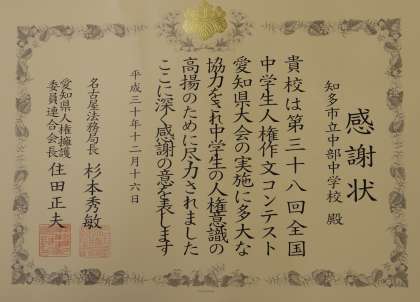 感謝状
知多市立中部中学校 殿
貴校は第三十八回全国
中学生人権作文コンテスト
愛知県大会の実施に多大な
協力をされ中学生の人権意識の
高揚のために尽力されました
ここに深く感謝の意を表します
平成三十年十二月十六日
名古屋法務局長 杉本秀敏
愛知県人権擁護
委員連合会長 住田正夫